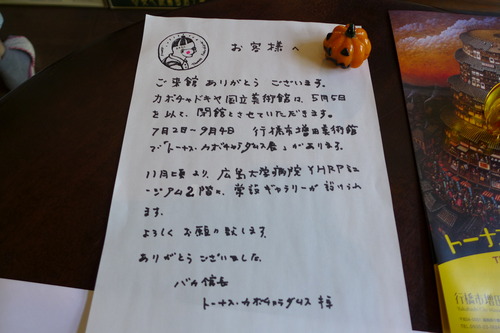 お客様へ
ご来館ありがとうございます。
カボチャドキヤ国立美術館は、5月5日
を以て、閉館とさせていただきます。
7月2日〜9月4日 行橋市増田美術館
で「トーナス・カボチャラダムス展」があります。
11月頃より、広島大学病院YHRPミュ
ージアム2階に、常設ギャラリーが設けられ
ます。
よろしくお願い致します。
ありがとうございました。
バカ館長
トーナス・カボチャラダムス 拝
トーナス
行橋市増田